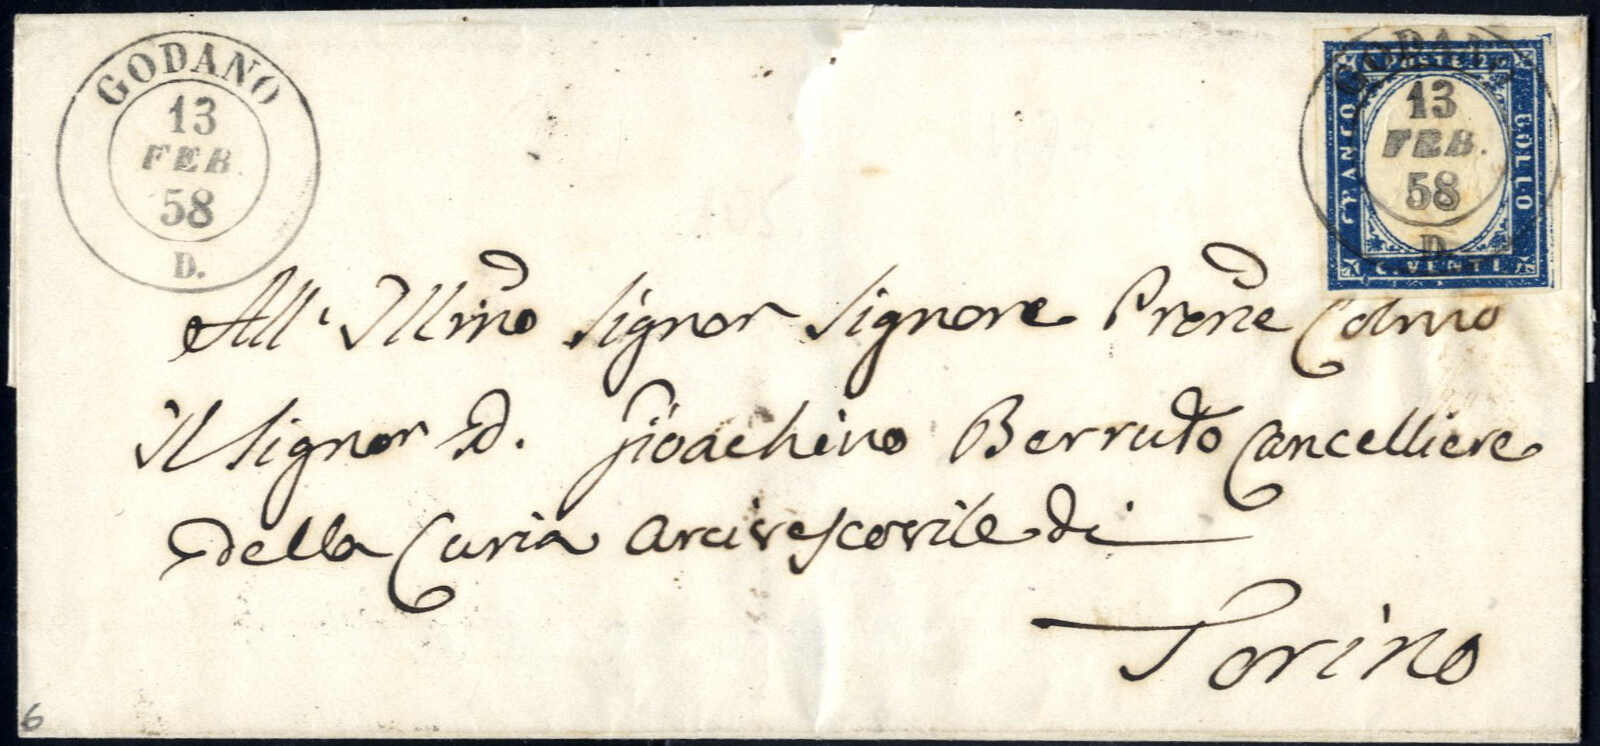 GODANO
13
FEB.
58
D.
POSTE
FRANCO
BOLLO
C. VENTI
GODANO
13
FEB.
58
D.
All' Illmo Signor Signore Prone Colmo
Il Signor D. Gioachino Berruto Cancelliere
della Curia Arcivescovile di
Torino
6